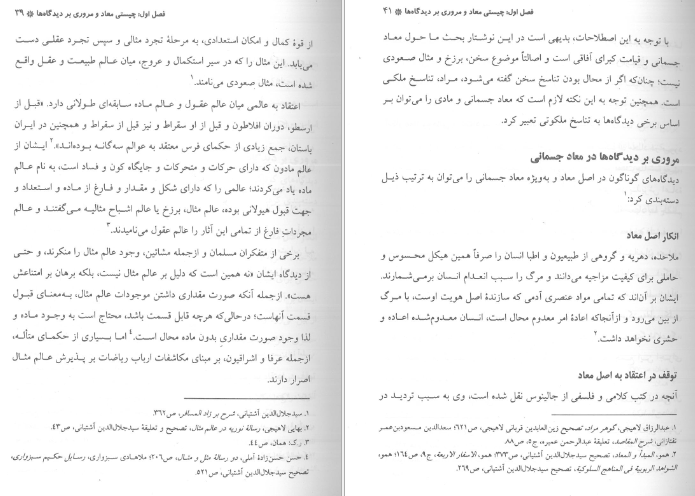 فصل اول: چیستی معاد و مروری بر دیدگاه‌ها ❋ ۳۹
از قوهٔ کمال و امکان استعدادی، به مرحلهٔ تجرد مثالی و سپس تجرد عقلی دست
می‌یابد. این مثال را که در سیر استکمال و عروج، میان عالم طبیعت و عقل واقع
شده است، مثال صعودی می‌نامند.۱
اعتقاد به عالمی میان عالم عقول و عالم ماده سابقه‌ای طولانی دارد. «قبل از
ارسطو، دوران افلاطون و قبل از او سقراط و نیز قبل از سقراط و همچنین در ایران
باستان، جمع زیادی از حکمای فرس معتقد به عوالم سه‌گانه بوده‌اند».۲ ایشان از
عالم مادون که دارای حرکات و متحرکات و جایگاه کون و فساد است، به نام عالم
ماده یاد می‌کردند؛ عالمی را که دارای شکل و مقدار و فارغ از ماده و استعداد و
جهت قبول هیولانی بوده، عالم مثال، برزخ یا عالم اشباح مثالیه می‌گفتند و عالم
مجردات فارغ از تمامی این آثار را عالم عقول می‌نامیدند.۳
برخی از متفکران مسلمان و ازجمله مشائین، وجود عالم مثال را منکرند، و حتی
از دیدگاه ایشان «نه همین است که دلیل بر عالم مثال نیست، بلکه برهان بر امتناعش
هست». ازجمله آنکه صورت مقداری داشتن موجودات عالم مثال، به‌معنای قبول
قسمت آنهاست؛ درحالی‌که هرچه قابل قسمت باشد، محتاج است به وجود ماده و
لذا وجود صورت مقداری بدون ماده محال است.۴ اما بسیاری از حکمای متأله،
ازجمله عرفا و اشراقیون، بر مبنای مکاشفات ارباب ریاضات بر پذیرش عالم مثال
اصرار دارند.
۱. سیدجلال‌الدین آشتیانی، شرح بر زاد المسافر، ص۳۶۲.
۲. بهایی لاهیجی، رسالة نوریه در عالم مثال، تصحیح و تعلیقهٔ سیدجلال‌الدین آشتیانی، ص۴۳.
۳. رک: همان، ص۴۴.
۴. حسن حسن‌زادهٔ آملی، دو رسالهٔ مثل و مثال، ص۲۰۶؛ ملاهادی سبزواری، رسایل حکیم سبزواری،
تصحیح سیدجلال‌الدین آشتیانی، ص۵۲۱.
فصل اول: چیستی معاد و مروری بر دیدگاه‌ها ❋ ۴۱
با توجه به این اصطلاحات، بدیهی است در این نوشتار بحث ما حول معاد
جسمانی و قیامت کبرای آفاقی است و اصالتاً موضوع سخن، برزخ و مثال صعودی
نیست؛ چنان‌که اگر از محال بودن تناسخ سخن گفته می‌شود، مراد، تناسخ ملکی
است. همچنین توجه به این نکته لازم است که معاد جسمانی و مادی را می‌توان بر
اساس برخی دیدگاه‌ها به تناسخ ملکوتی تعبیر کرد.
مروری بر دیدگاه‌ها در معاد جسمانی
دیدگاه‌های گوناگون در اصل معاد و به‌ویژه معاد جسمانی را می‌توان به ترتیب ذیل
دسته‌بندی کرد:۱
انکار اصل معاد
ملاحده، دهریه و گروهی از طبیعیون و اطبا انسان را صرفاً همین هیکل محسوس و
حاملی برای کیفیت مزاجیه می‌دانند و مرگ را سبب انعدام انسان برمی‌شمارند.
ایشان بر آن‌اند که تمامی مواد عنصری آدمی که سازندهٔ اصل هویت اوست، با مرگ
از بین می‌رود و ازآنجاکه اعادهٔ امر معدوم محال است، انسان معدوم‌شده اعاده و
حشری نخواهد داشت.۲
توقف در اعتقاد به اصل معاد
آنچه در کتب کلامی و فلسفی از جالینوس نقل شده است، وی به سبب تردید در
۱. عبدالرزاق لاهیجی، گوهر مراد، تصحیح زین‌العابدین قربانی لاهیجی، ص۶۲۱؛ سعدالدین مسعودبن‌عمر
تفتازانی، شرح المقاصد، تعلیقهٔ عبدالرحمن عمیره، ج۵، ص۸۸.
۲. همو، المبدأ و المعاد، تصحیح سیدجلال‌الدین آشتیانی، ص۳۷۳؛ همو، الاسفار الاربعه، ج۹، ص۱۶۴؛ همو،
الشواهد الربوبیة فی المناهج السلوکیة، تصحیح سیدجلال‌الدین آشتیانی، ص۲۶۹.